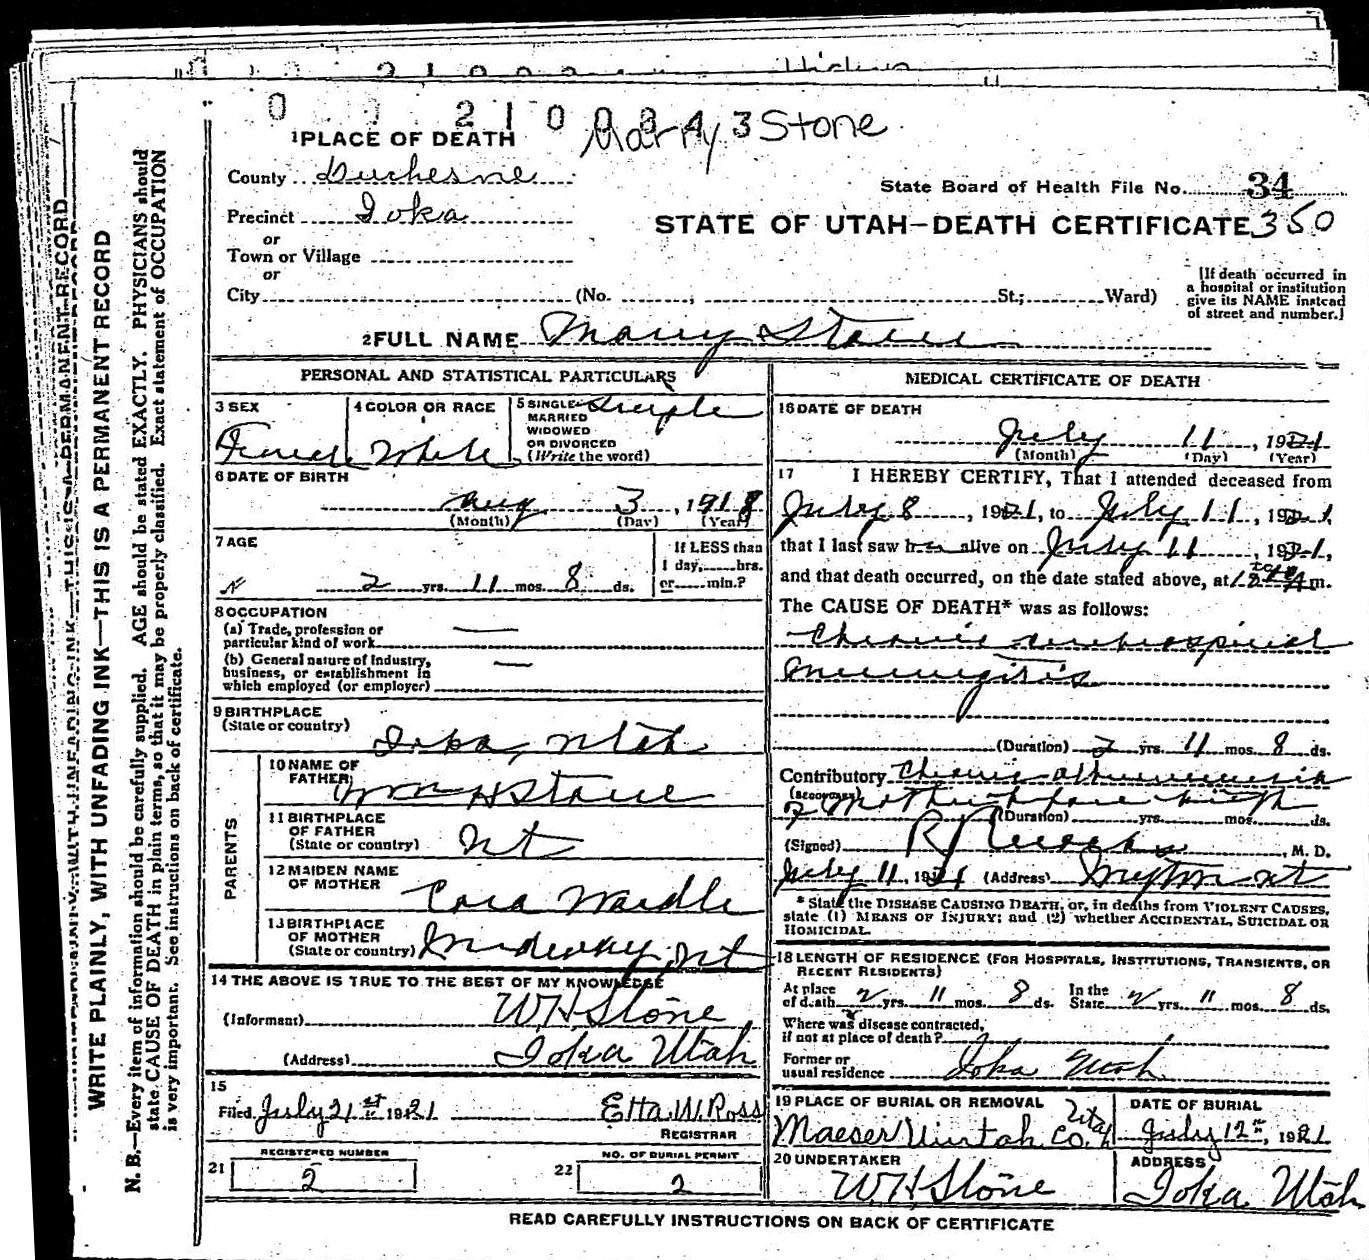 0 2 1 0 0 3 4 3
Marry Stone
1 PLACE OF DEATH
County Duchesne
State Board of Health File No. 34
Precinct Ioka
STATE OF UTAH—DEATH CERTIFICATE 350
or
Town or Village
or
City (No. , St.; Ward)
[If death occurred in a hospital or institution give its NAME instead of street and number.]
2 FULL NAME Marry Stone
PERSONAL AND STATISTICAL PARTICULARS
3 SEX Female
4 COLOR OR RACE White
5 SINGLE MARRIED WIDOWED OR DIVORCED (Write the word) Single
6 DATE OF BIRTH
Aug 3, 1918
(Month) (Day) (Year)
7 AGE
2 yrs. 11 mos. 8 ds.
If LESS than
1 day, hrs.
or min.?
8 OCCUPATION
(a) Trade, profession or
particular kind of work —
(b) General nature of Industry,
business, or establishment in
which employed (or employer) —
9 BIRTHPLACE
(State or country) Ioka, Utah
PARENTS
10 NAME OF
FATHER Wm H Stone
11 BIRTHPLACE
OF FATHER
(State or country) Ut
12 MAIDEN NAME
OF MOTHER Cora Wardle
13 BIRTHPLACE
OF MOTHER
(State or country) Midway, Ut
14 THE ABOVE IS TRUE TO THE BEST OF MY KNOWLEDGE
(Informant) W H Stone
(Address) Ioka Utah
15
Filed July 21st 1921 Etta W. Ross
REGISTRAR
21 REGISTERED NUMBER 2
22 NO. OF BURIAL PERMIT 2
MEDICAL CERTIFICATE OF DEATH
16 DATE OF DEATH
July 11, 1921
(Month) (Day) (Year)
17 I HEREBY CERTIFY, That I attended deceased from
July 8, 1921, to July 11, 1921,
that I last saw her alive on July 11, 1921,
and that death occurred, on the date stated above, at m.
The CAUSE OF DEATH* was as follows:
Chronic cerebrospinal
meningitis
(Duration) 2 yrs. 11 mos. 8 ds.
Contributory Chronic albuminuria
(SECONDARY) of Mother before birth
(Duration) yrs. mos. ds.
(Signed) R , M. D.
July 11, 1921 (Address) Myton Ut
* State the DISEASE CAUSING DEATH, or, in deaths from VIOLENT CAUSES,
state (1) MEANS OF INJURY; and (2) whether ACCIDENTAL, SUICIDAL OR
HOMICIDAL.
18 LENGTH OF RESIDENCE (FOR HOSPITALS, INSTITUTIONS, TRANSIENTS, OR
RECENT RESIDENTS)
At place of death 2 yrs. 11 mos. 8 ds. In the State 2 yrs. 11 mos. 8 ds.
Where was disease contracted,
if not at place of death?
Former or
usual residence Ioka Utah
19 PLACE OF BURIAL OR REMOVAL
Maeser Uintah Co. Utah
DATE OF BURIAL
July 12th, 1921
20 UNDERTAKER
W H Stone
ADDRESS
Ioka Utah
READ CAREFULLY INSTRUCTIONS ON BACK OF CERTIFICATE
WRITE PLAINLY, WITH UNFADING INK—THIS IS A PERMANENT RECORD
N. B.—Every item of information should be carefully supplied. AGE should be stated EXACTLY. PHYSICIANS should
state CAUSE OF DEATH in plain terms, so that it may be properly classified. Exact statement of OCCUPATION
is very important. See instructions on back of certificate.